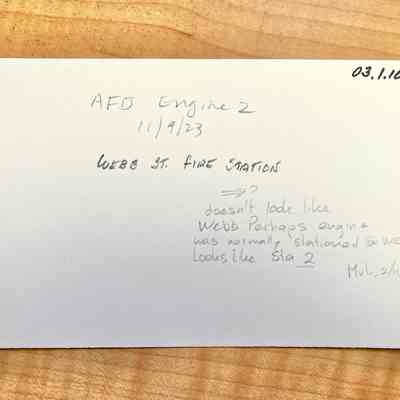 03.1.10
AFD Engine 2
11/9/23
WEBB ST. FIRE STATION
⇒?
doesn't look like
Webb Perhaps engine
was normally stationed @ We
Looks like Sta 2